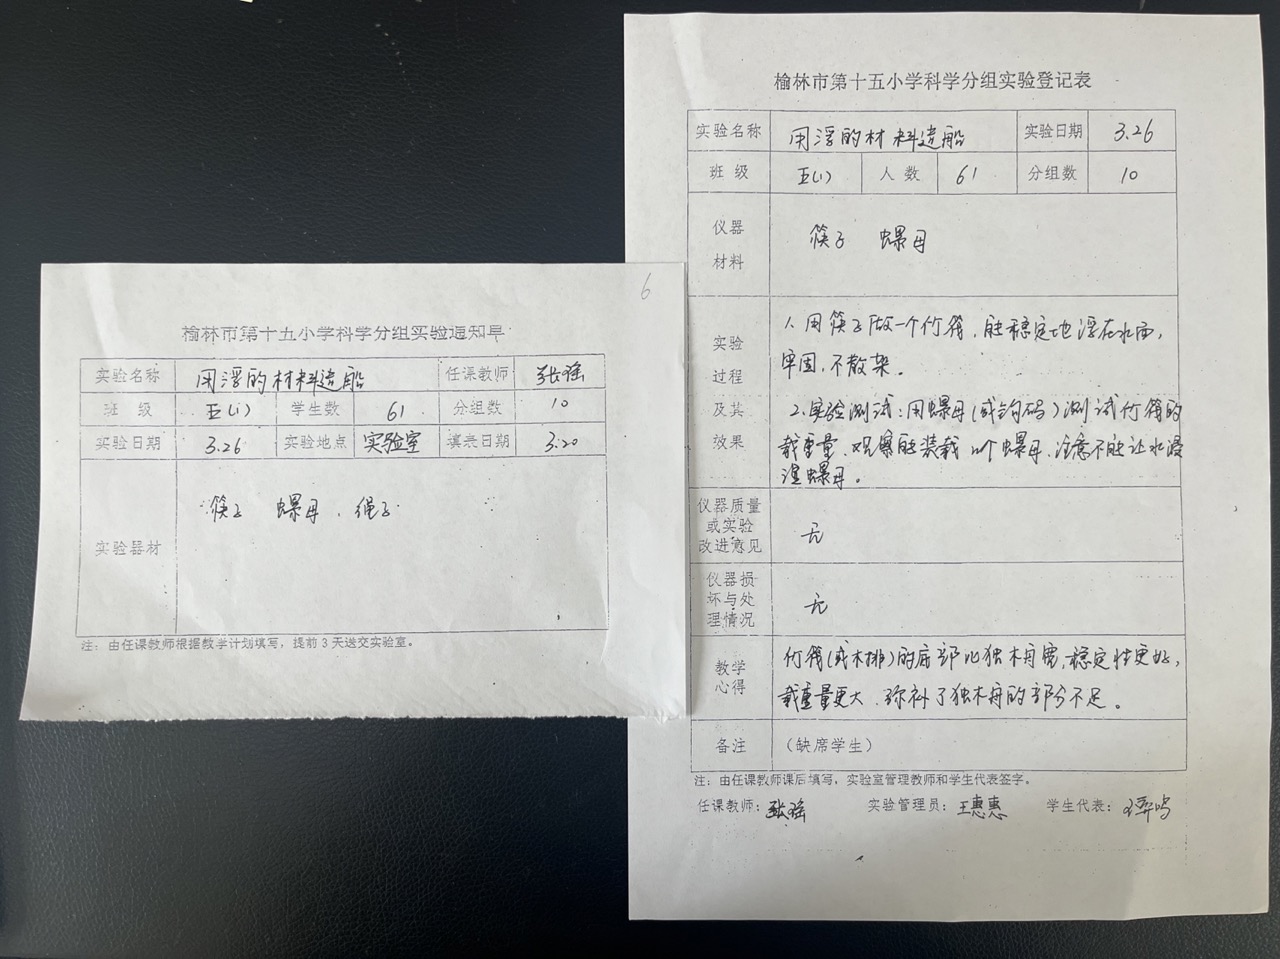 6
榆林市第十五小学科学分组实验通知单
实验名称 用浮的材料造船 任课教师 张瑶
班级 五(1) 学生数 61 分组数 10
实验日期 3.26 实验地点 实验室 填表日期 3.20
筷子 螺母、绳子
实验器材
注：由任课教师根据教学计划填写，提前3天送交实验室。
榆林市第十五小学科学分组实验登记表
实验名称 用浮的材料造船 实验日期 3.26
班级 五(1) 人数 61 分组数 10
仪器
材料
筷子 螺母
实验
过程
及其
效果
1. 用筷子做一个竹筏，能稳定地浮在水面，
牢固，不散架。
2. 实验测试：用螺母（或钩码）测试竹筏的
载重量，观察能装载 个螺母，注意不能让水浸
湿螺母。
仪器质量
或实验
改进意见
无
仪器损
坏与处
理情况
无
教学
心得
竹筏（或木排）的底部比独木舟宽，稳定性更好，
载重量更大，弥补了独木舟的部分不足。
备注 （缺席学生）
注：由任课教师课后填写，实验室管理教师和学生代表签字。
任课教师：张瑶 实验管理员：王惠惠 学生代表：